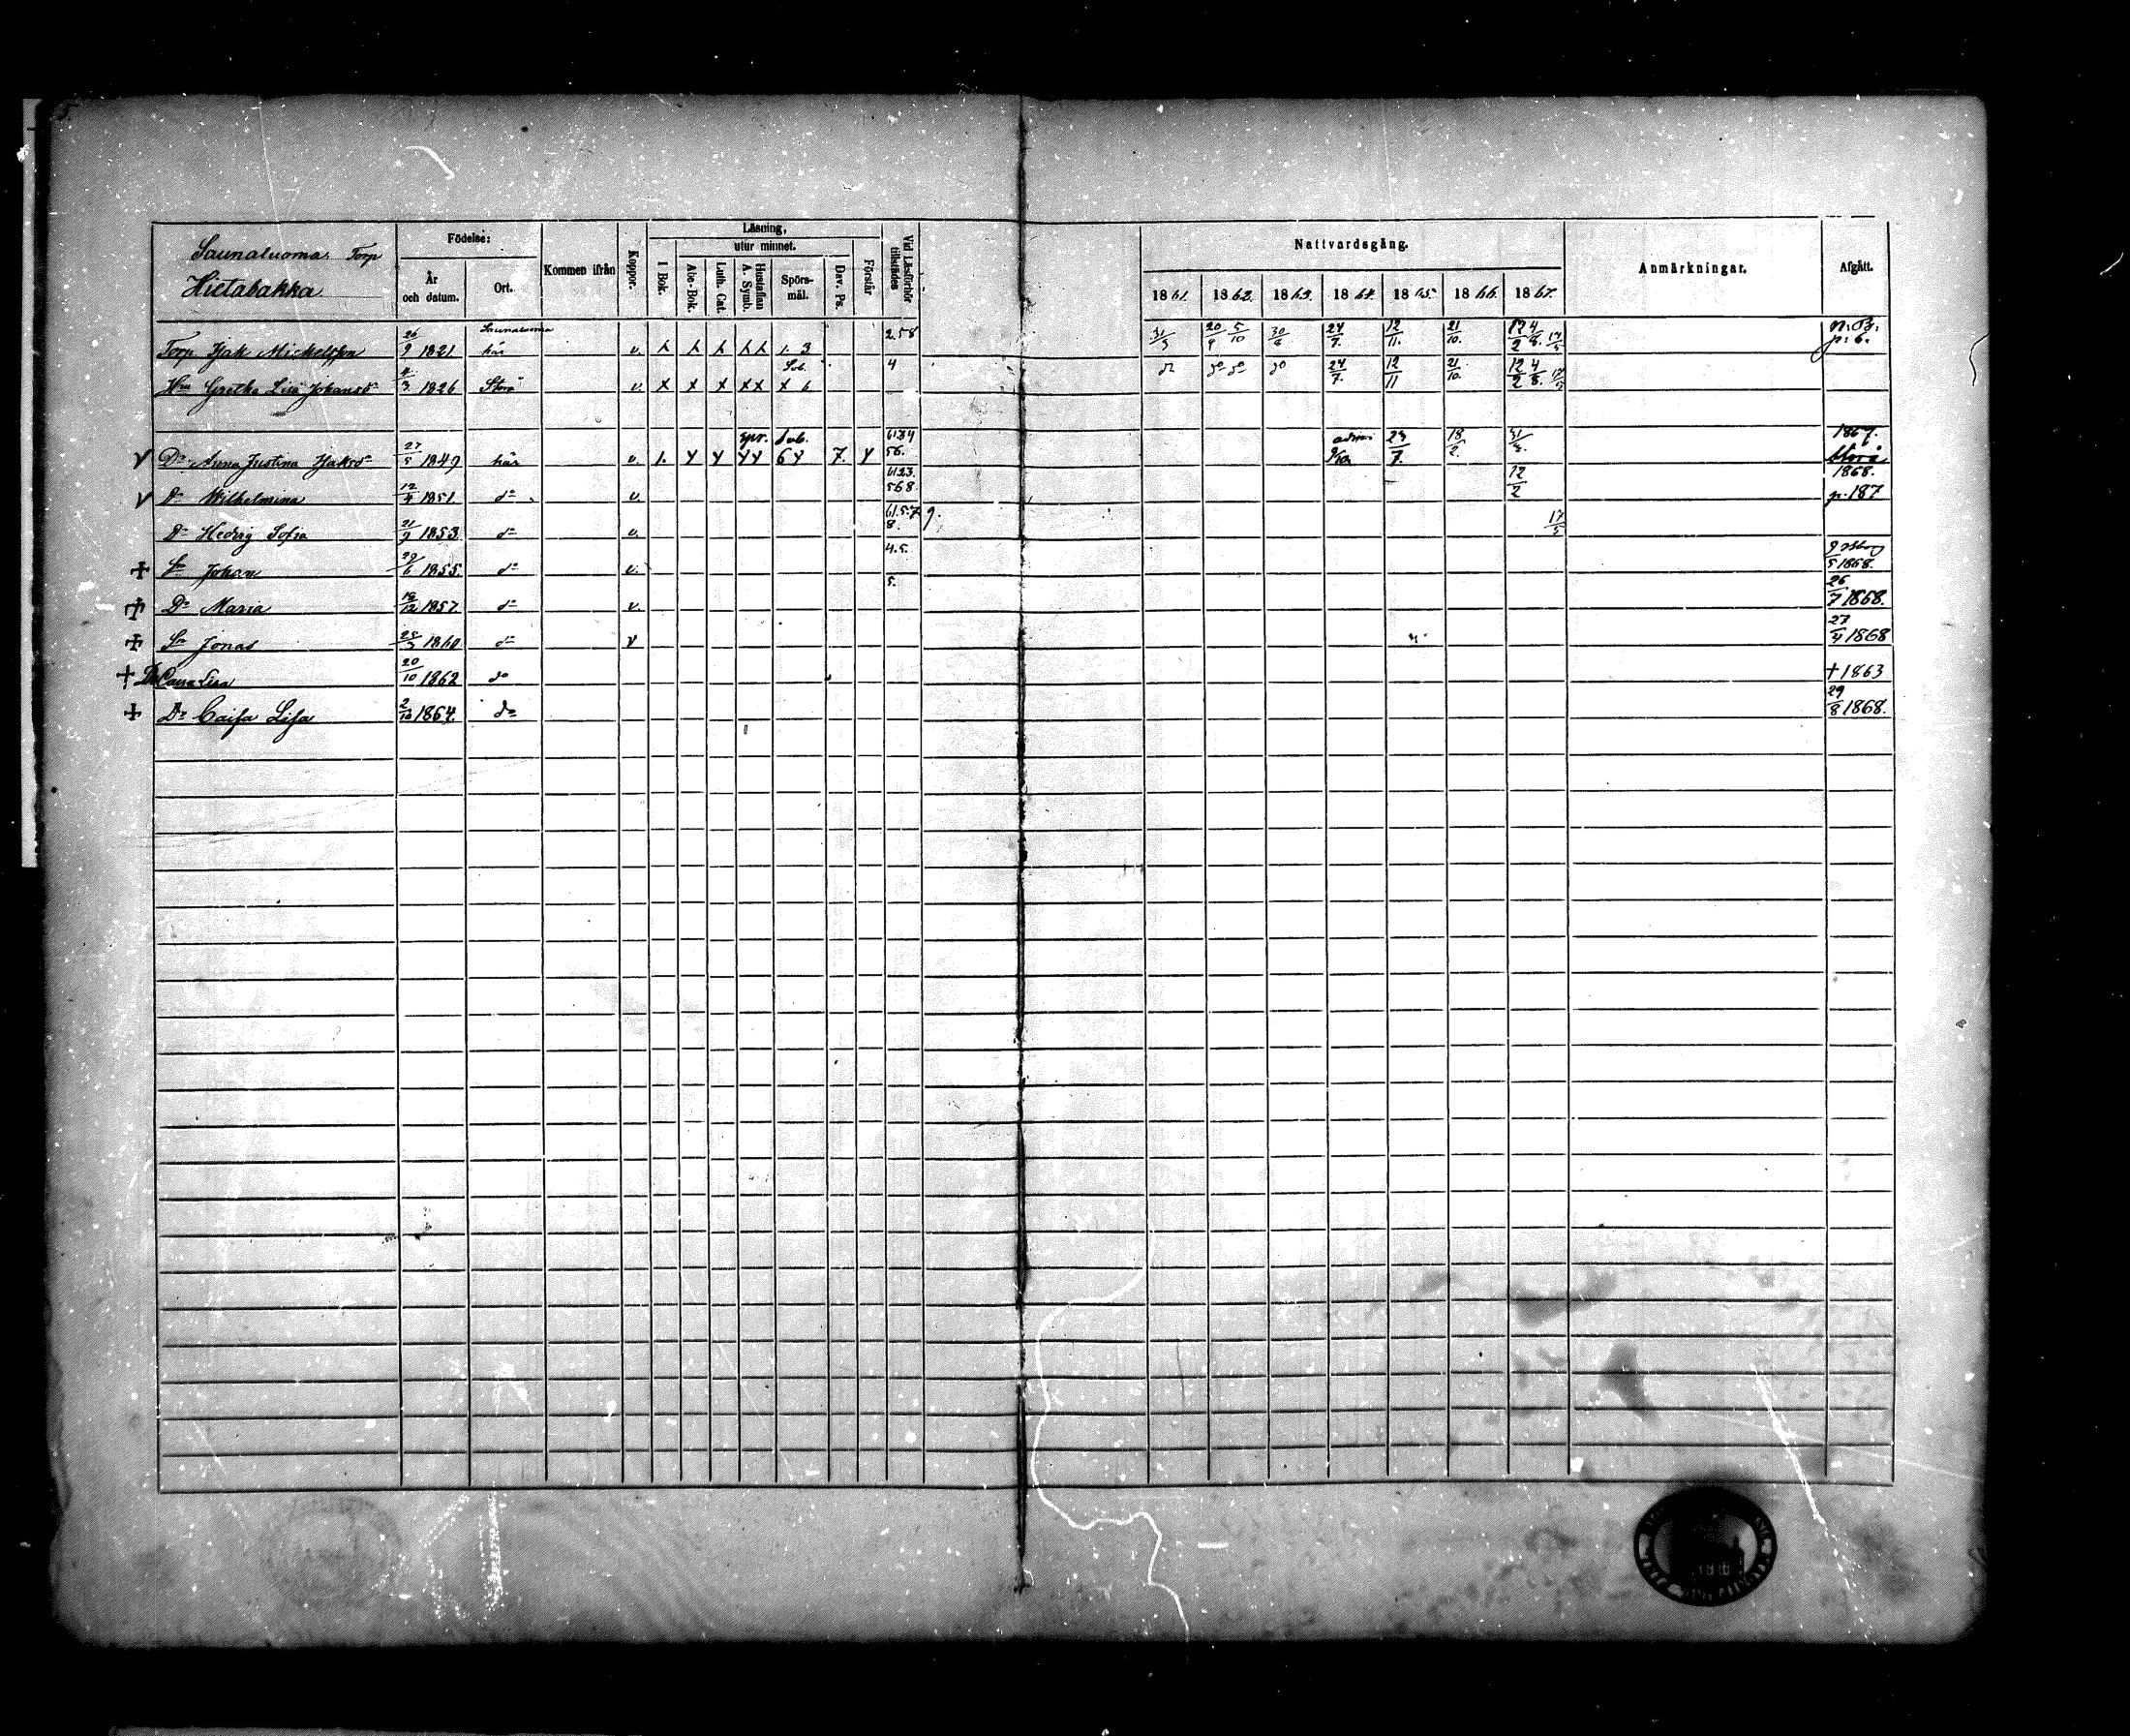 5.
Saunaluoma Torp
Hietabakka
Födelse:
År och datum.
Ort.
Kommen ifrån
Koppor.
Läsning,
I Bok.
utur minnet.
Abc-Bok.
Luth. Cat.
Hustaflan A. Symb.
Spörs-mål.
Dav. Ps.
Förstår
Vid Läsförhör tillstädes
Nattvardsgång.
1861. 1862. 1863. 1864. 1865. 1866. 1867.
Anmärkningar.
Afgått.
Torp. Isak Mickelsson 26/9 1821 Saunaluoma här v. 1. 3 2.58 31/3 20/4 5/10 30/4 24/7. 12/11. 21/10. 12/2 4/8. 17/5 N. B. p. 6.
Hu Gretha Lisa Johansdr 4/3 1826 Storå v. x x x x x x 6 4 do do do do 24/7. 12/11 21/10. 12/2 4/8. 17/5
Dr Anna Justina Isaksdr 27/5 1849 här v. 1. 7. 6134 56. 18/2. 31/3. 1867. Storå
Dr Wilhelmina 12/4 1851. do v. 6123. 568. 12/2 1868. p. 187
Dr Hedvig Sofia 21/9 1853. do v. 61.5.7 8. 9. 17/5
+ Sn Johan 29/6 1855. do v. 4.5. 9/5 1868.
+ Dr Maria 18/12 1857. do v. 5. 26/7 1868.
+ Sn Jonas 1860 do v 27/4 1868
+ Dr Casa Lisa 20/10 1862 do + 1863
+ Dr Caisa Lisa 2/10 1864. do 29/8 1868.